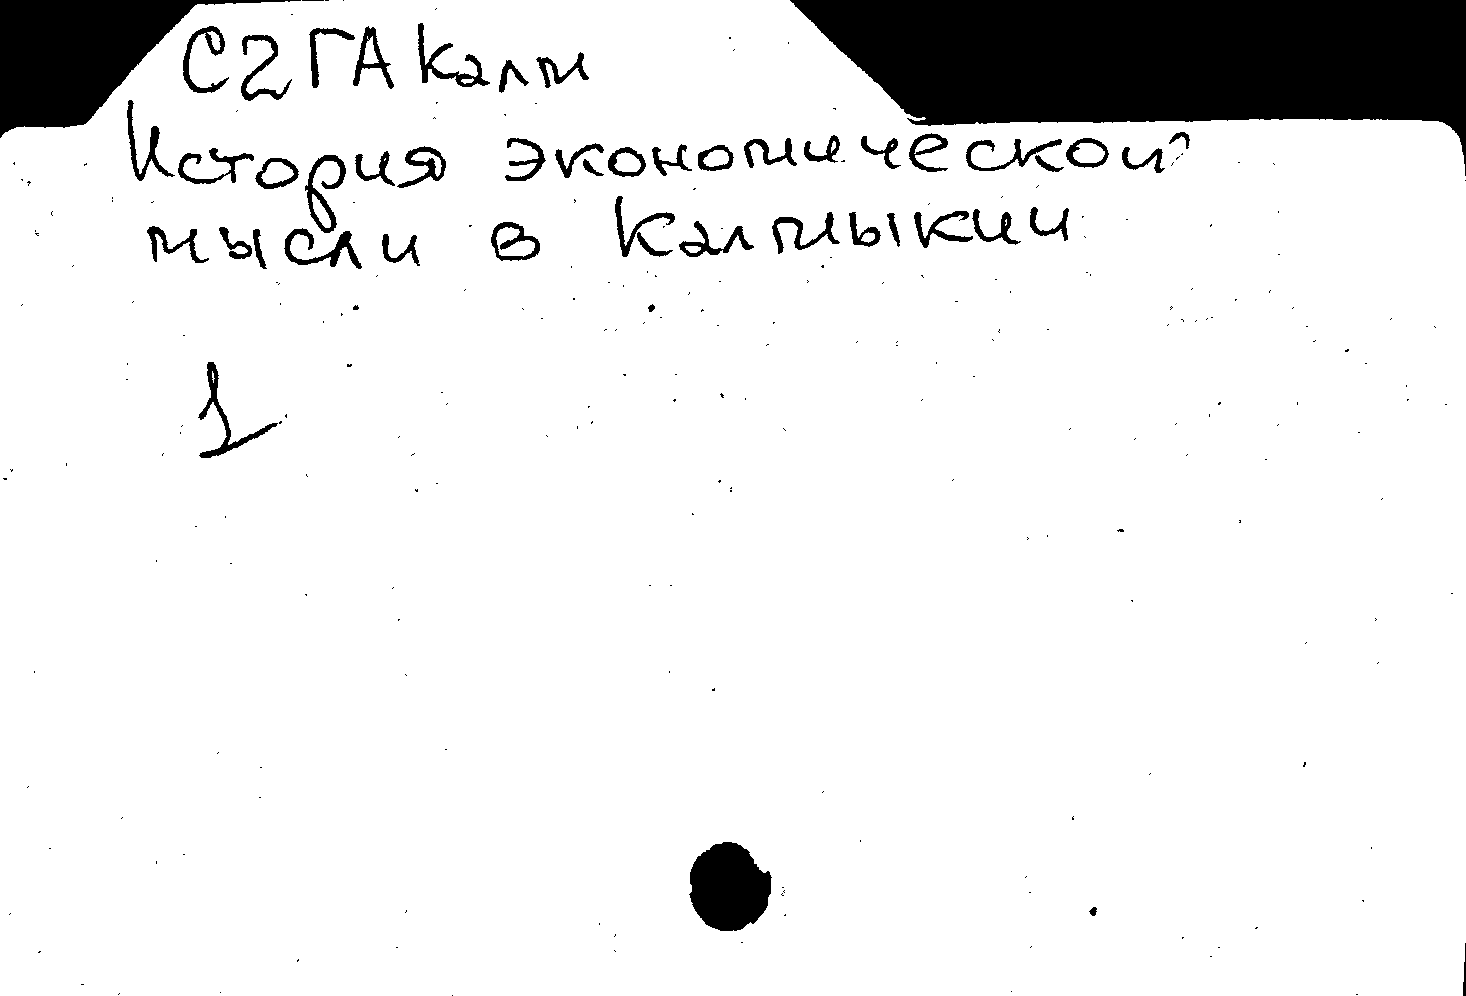 С2ГА Калм
История экономической
мысли в Калмыкии
1